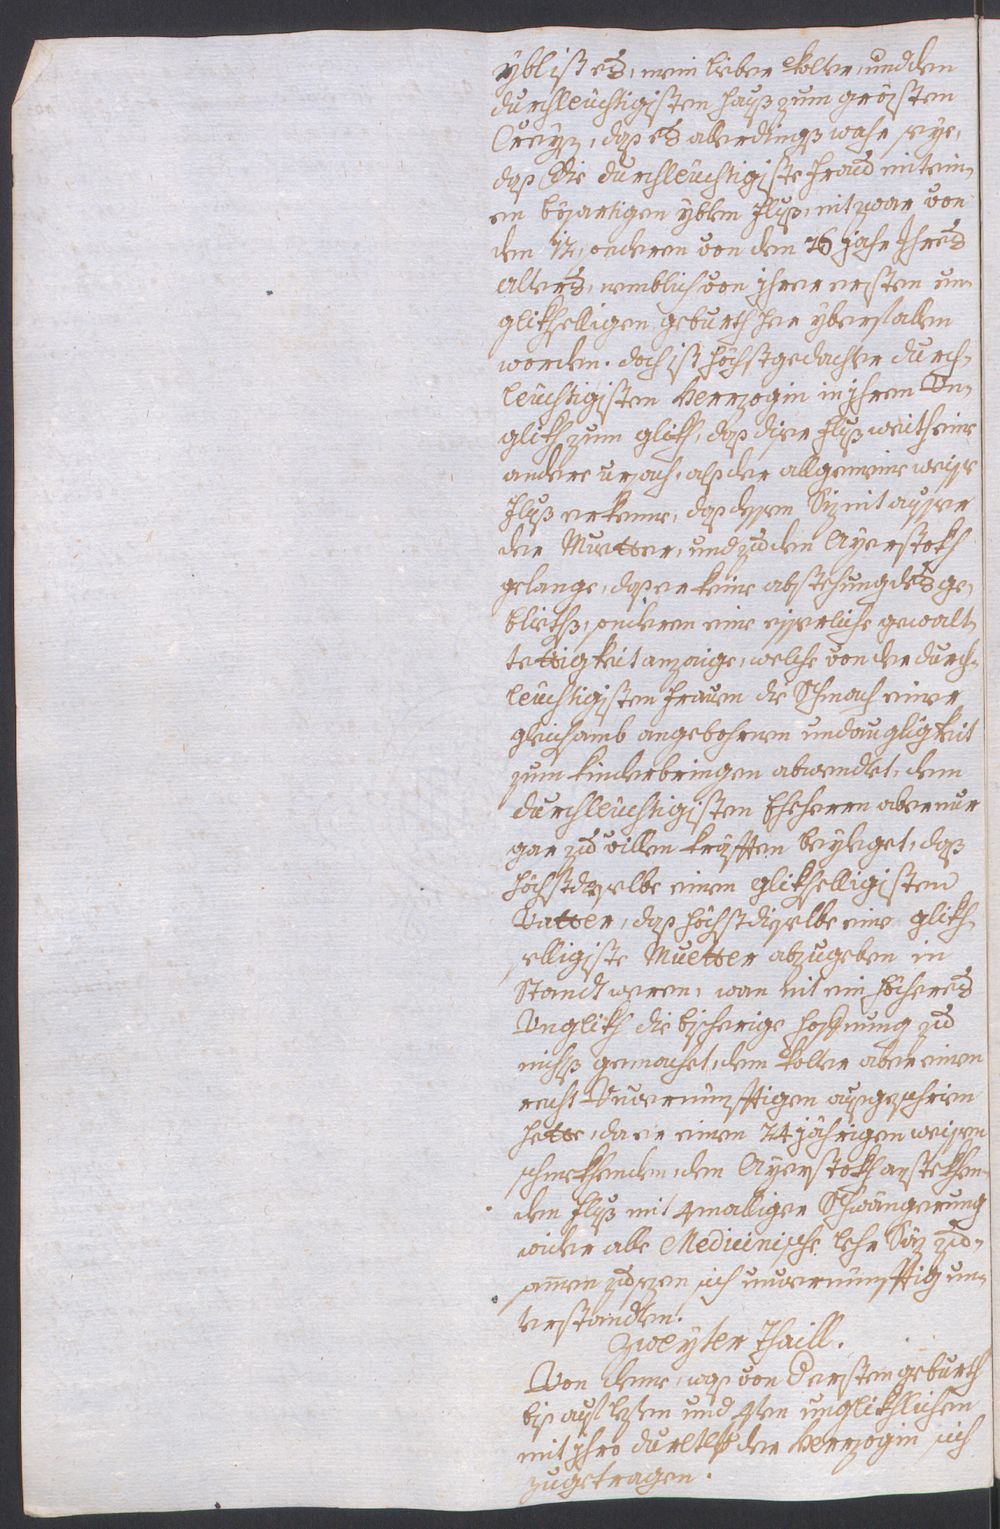 ybl ist es, mein lieber Koler, und dem
durchleüchtigisten Hauß zum grösten
Creüz, daß es allerdings wahr seye,
daß die durchleüchtigiste Fraw mit ein-
em bösartigen yblen Fluß, nit zwar von
dem 12, sonderen von dem 16 jahr Ihres
alters, nemblich von ihrer ersten un-
glikhselligen geburth her yberfallen
worden. doch ist höchstgedachter durch-
leüchtigisten Herzogin in ihrem Un-
glikh zum glikh, daß diser Fluß weith eine
andere ursach, als der allgemeine weisse
Fluß erkenne, das dessen Siz nit ausser
der Muetter, und zu dem Ayerstokh
gelange, daß er keine abstehung des ge-
blieths, sonderen eine eisserliche gewalt-
tettigkeit anzaige, welche von der durch-
leüchtigisten Frauen die Schmach einer
gleichsamb angebohrnen undaugligkeit
zum kinderbringen abwendet, dem
durchleüchtigisten Eheherrn aber nur
gar zu villen kräfften beyleget, daß
höchstderselbe einen glikhselligisten
Vatter, daß höchstdieselbe eine glikh-
selligiste Muetter abzugeben in
Standt weren, wan nit ein höheres
Unglikh die bisherige Hoffnung zu
nichts gemachet, dem Koler aber einen
recht Unvernünfftigen ausgeschrien
hette, da er einen 24 jährigen weissen
schmekhenden, den Ayerstokh anstekhen-
den Fluß mit 4 malliger Schwängerung
wider alle Medicinische lehr Säz zu-
samen zusezen sich unvernünfftig un-
terstanden.
Zweyter Thaill.
Von deme, was von der ersten geburth
bis auf lezten und 4ten unglikhlichen
mit Ihro durchl. der Herzogin sich
zugetragen.